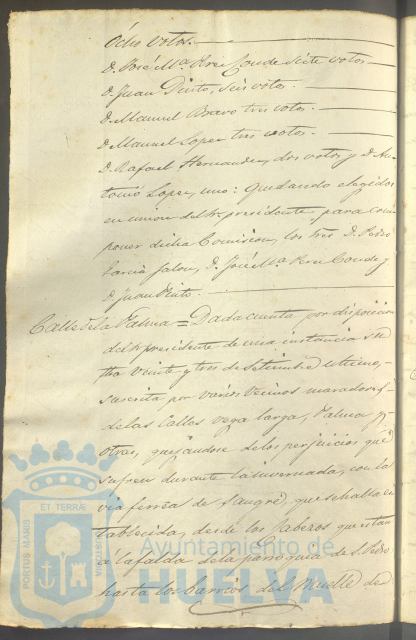 ócho votos.
D. José Mª Perez Conde siete votos
D. Juan Pinto, seis votos.
D. Manuel Bravo tres votos.
D. Manuel Lopez tres votos.
D. Rafael Hernandez, dos votos y D. An-
tonio Lopez, uno: quedando elegidos
en union del Sr. presidente para com
poner dicha Comision, los tres D. Pedro
Garcia Jalon, D. José Mª Perez Conde y
D. Juan Pinto.
Calle de la Palma = Dada cuenta por disposicion
del Sr. presidente de una instancia
fha veinte y tres de Setiembre ultimo,
suscrita por varios vecinos moradores
de las Calles vega larga, Palma y
otras, quejándose de los perjuicios que
sufren durante la invernada, con la
via ferrea de Sangre, que se halla es
tablecida, desde los Cabezos que estan
á la falda de la parroquia de S. Pedro
hasta los barrios del Muelle de
PORTUS MARIS ET TERRÆ CUSTODIA
Ayuntamiento de
HUELVA